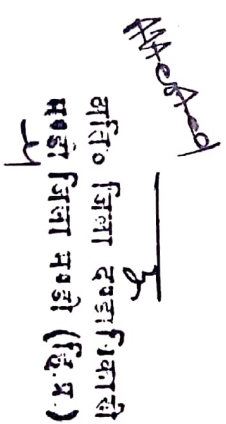 Attested
अति० जिला दण्डाधिकारी
मण्डी जिला मण्डी (हि.प्र.)